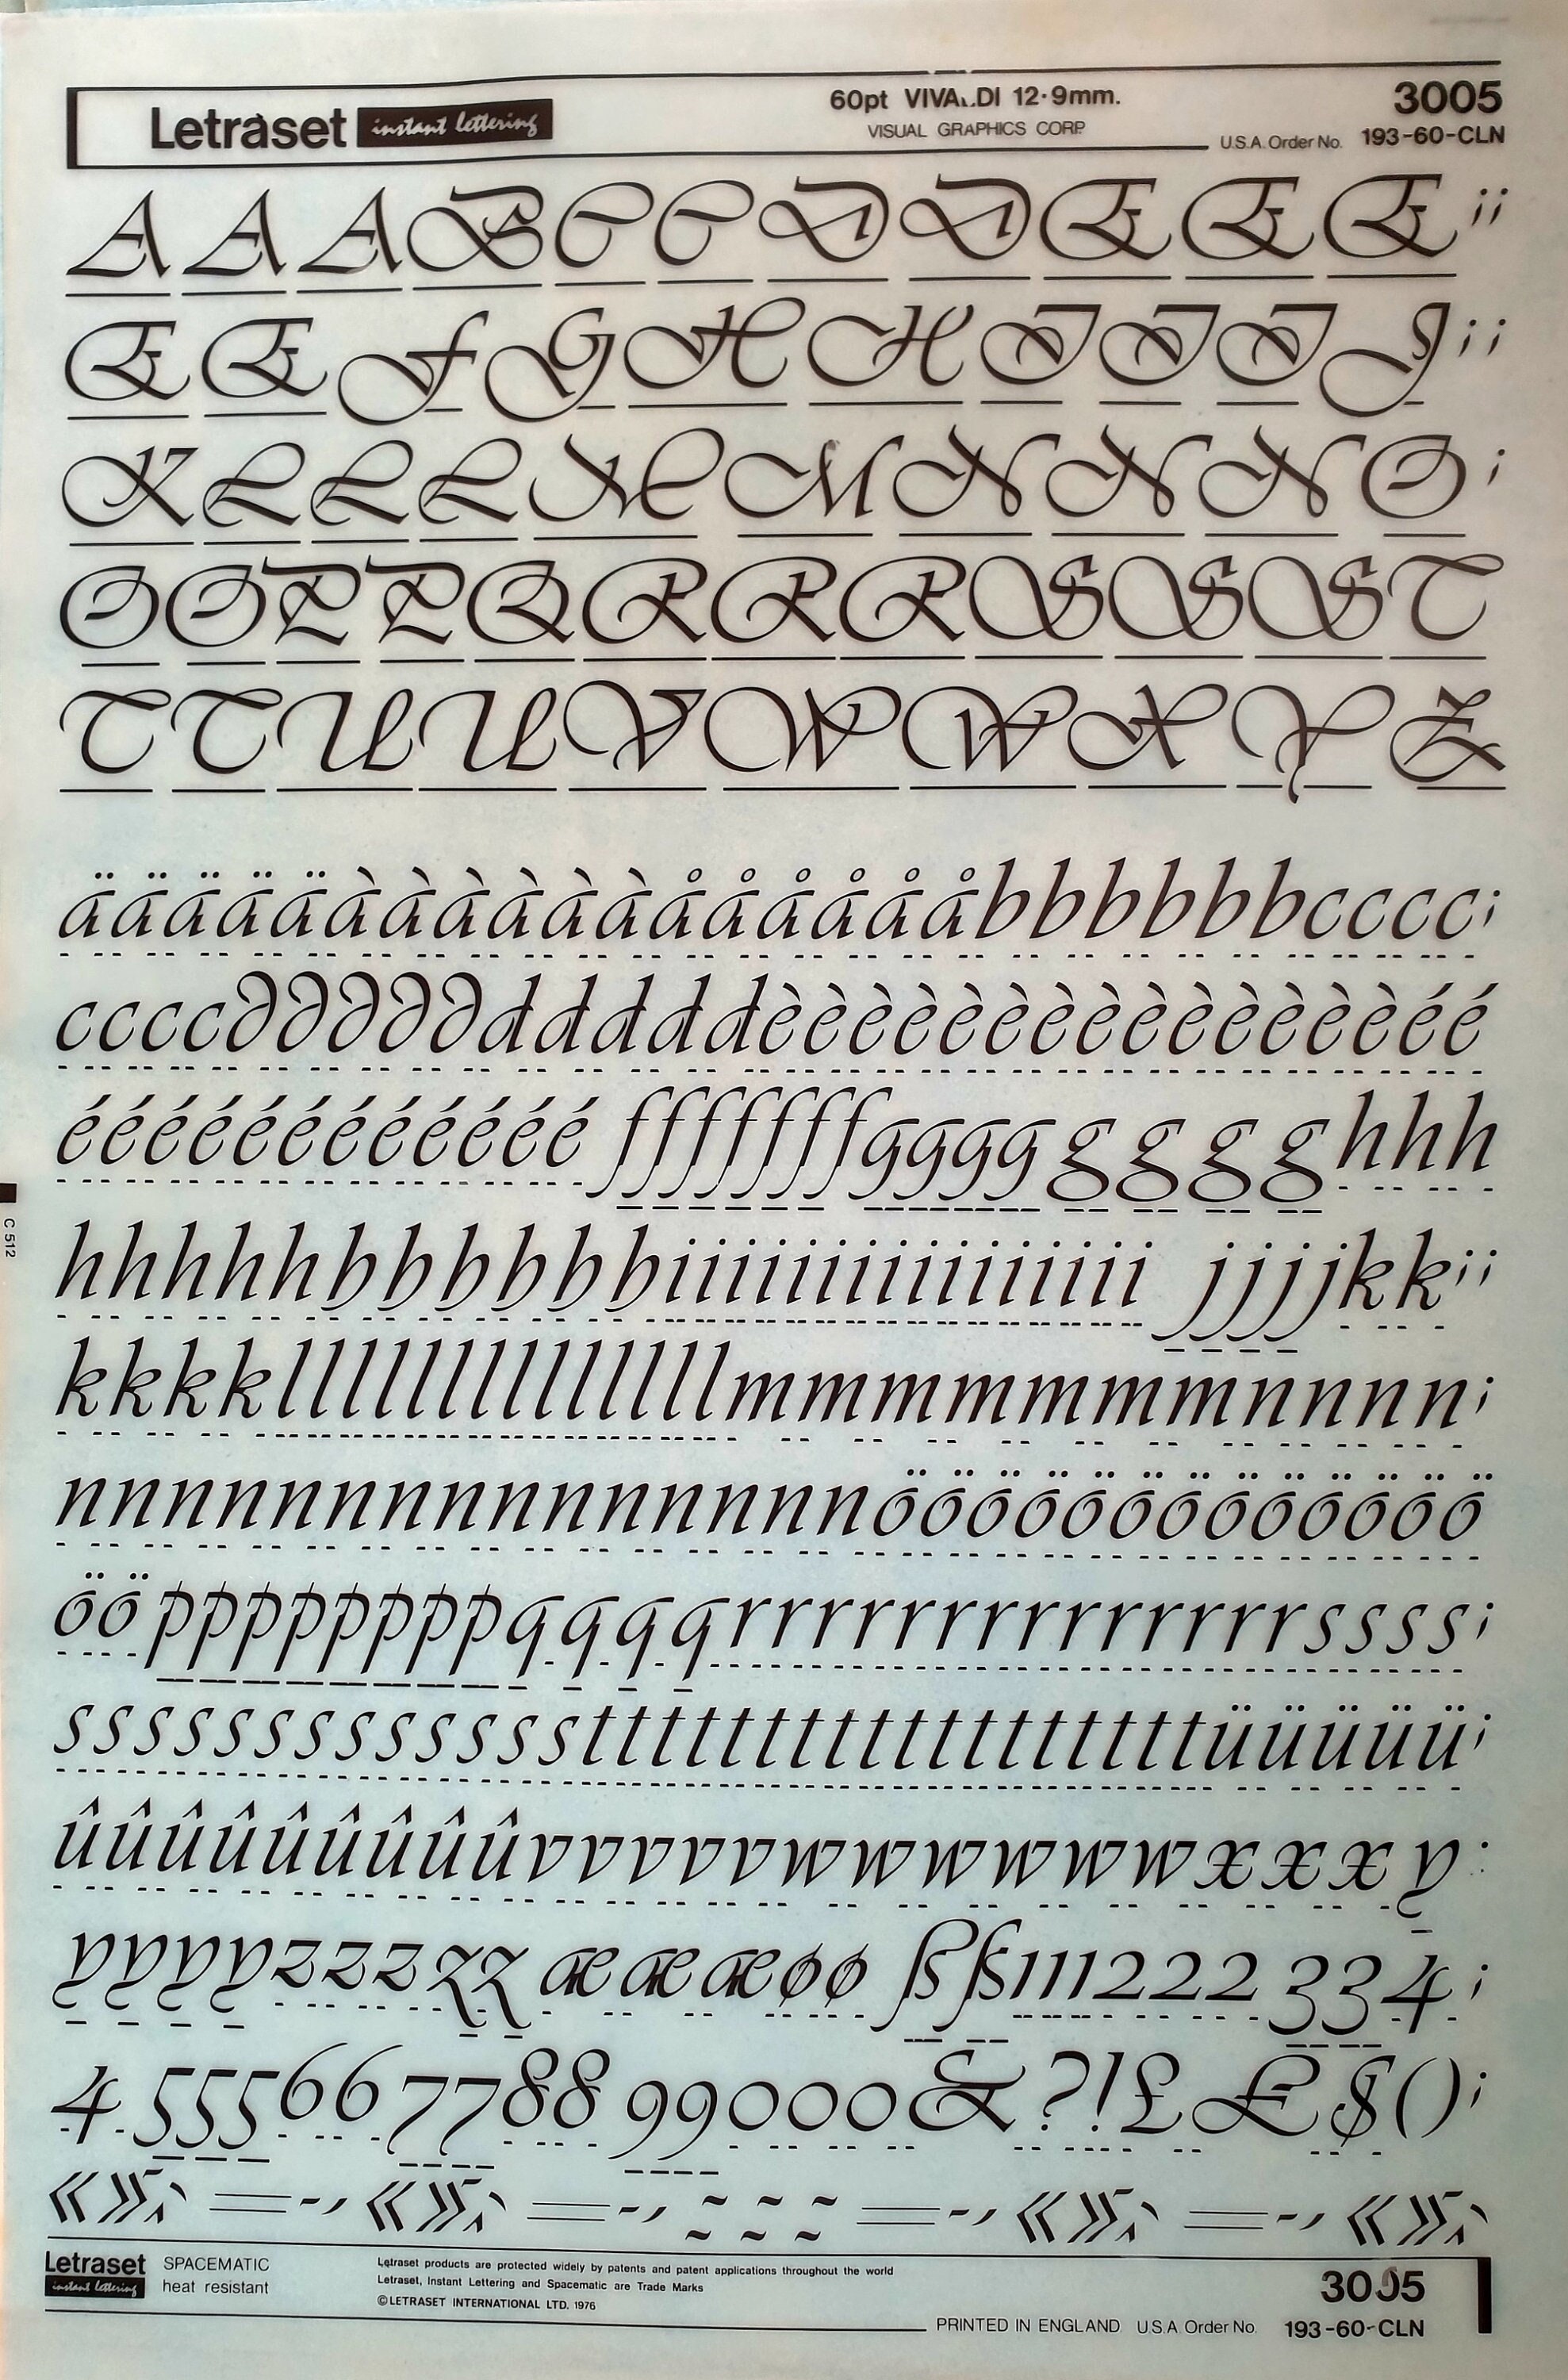 Letraset instant lettering
60pt VIVALDI 12·9mm.
VISUAL GRAPHICS CORP.
3005
U.S.A. Order No. 193-60-CLN
A A A B C C D D E E E ; ;
E E F G H H I I I J ; ;
K L L L M M N N N O ;
O O P P Q R R R S S S T
T T U U V W W X Y Z
äääääààààààååååååbbbbbbcccc;
ccccddddddddddèèèèèèèèèèèèèèéé
ééééééééééééfffffffgggggggghhh
hhhhhhhhhhhiiiiiiiiiiiiiiiiijjjjkk;;
kkkkllllllllllllllmmmmmmmnnnn;
nnnnnnnnnnnnnnnööööööööööööö
ööppppppppqqqqrrrrrrrrrrrrrrssss;
ssssssssssssstttttttttttttttttüüüüü;
ûûûûûûûûûvvvvvwwwwwwxxxy:
yyyyzzzzzæææøøßß111222334;
455566778899000&?!££$();
C 512
Letraset instant lettering
SPACEMATIC
heat resistant
Letraset products are protected widely by patents and patent applications throughout the world
Letraset, Instant Lettering and Spacematic are Trade Marks
© LETRASET INTERNATIONAL LTD. 1976
PRINTED IN ENGLAND U.S.A. Order No. 193-60-CLN
3005